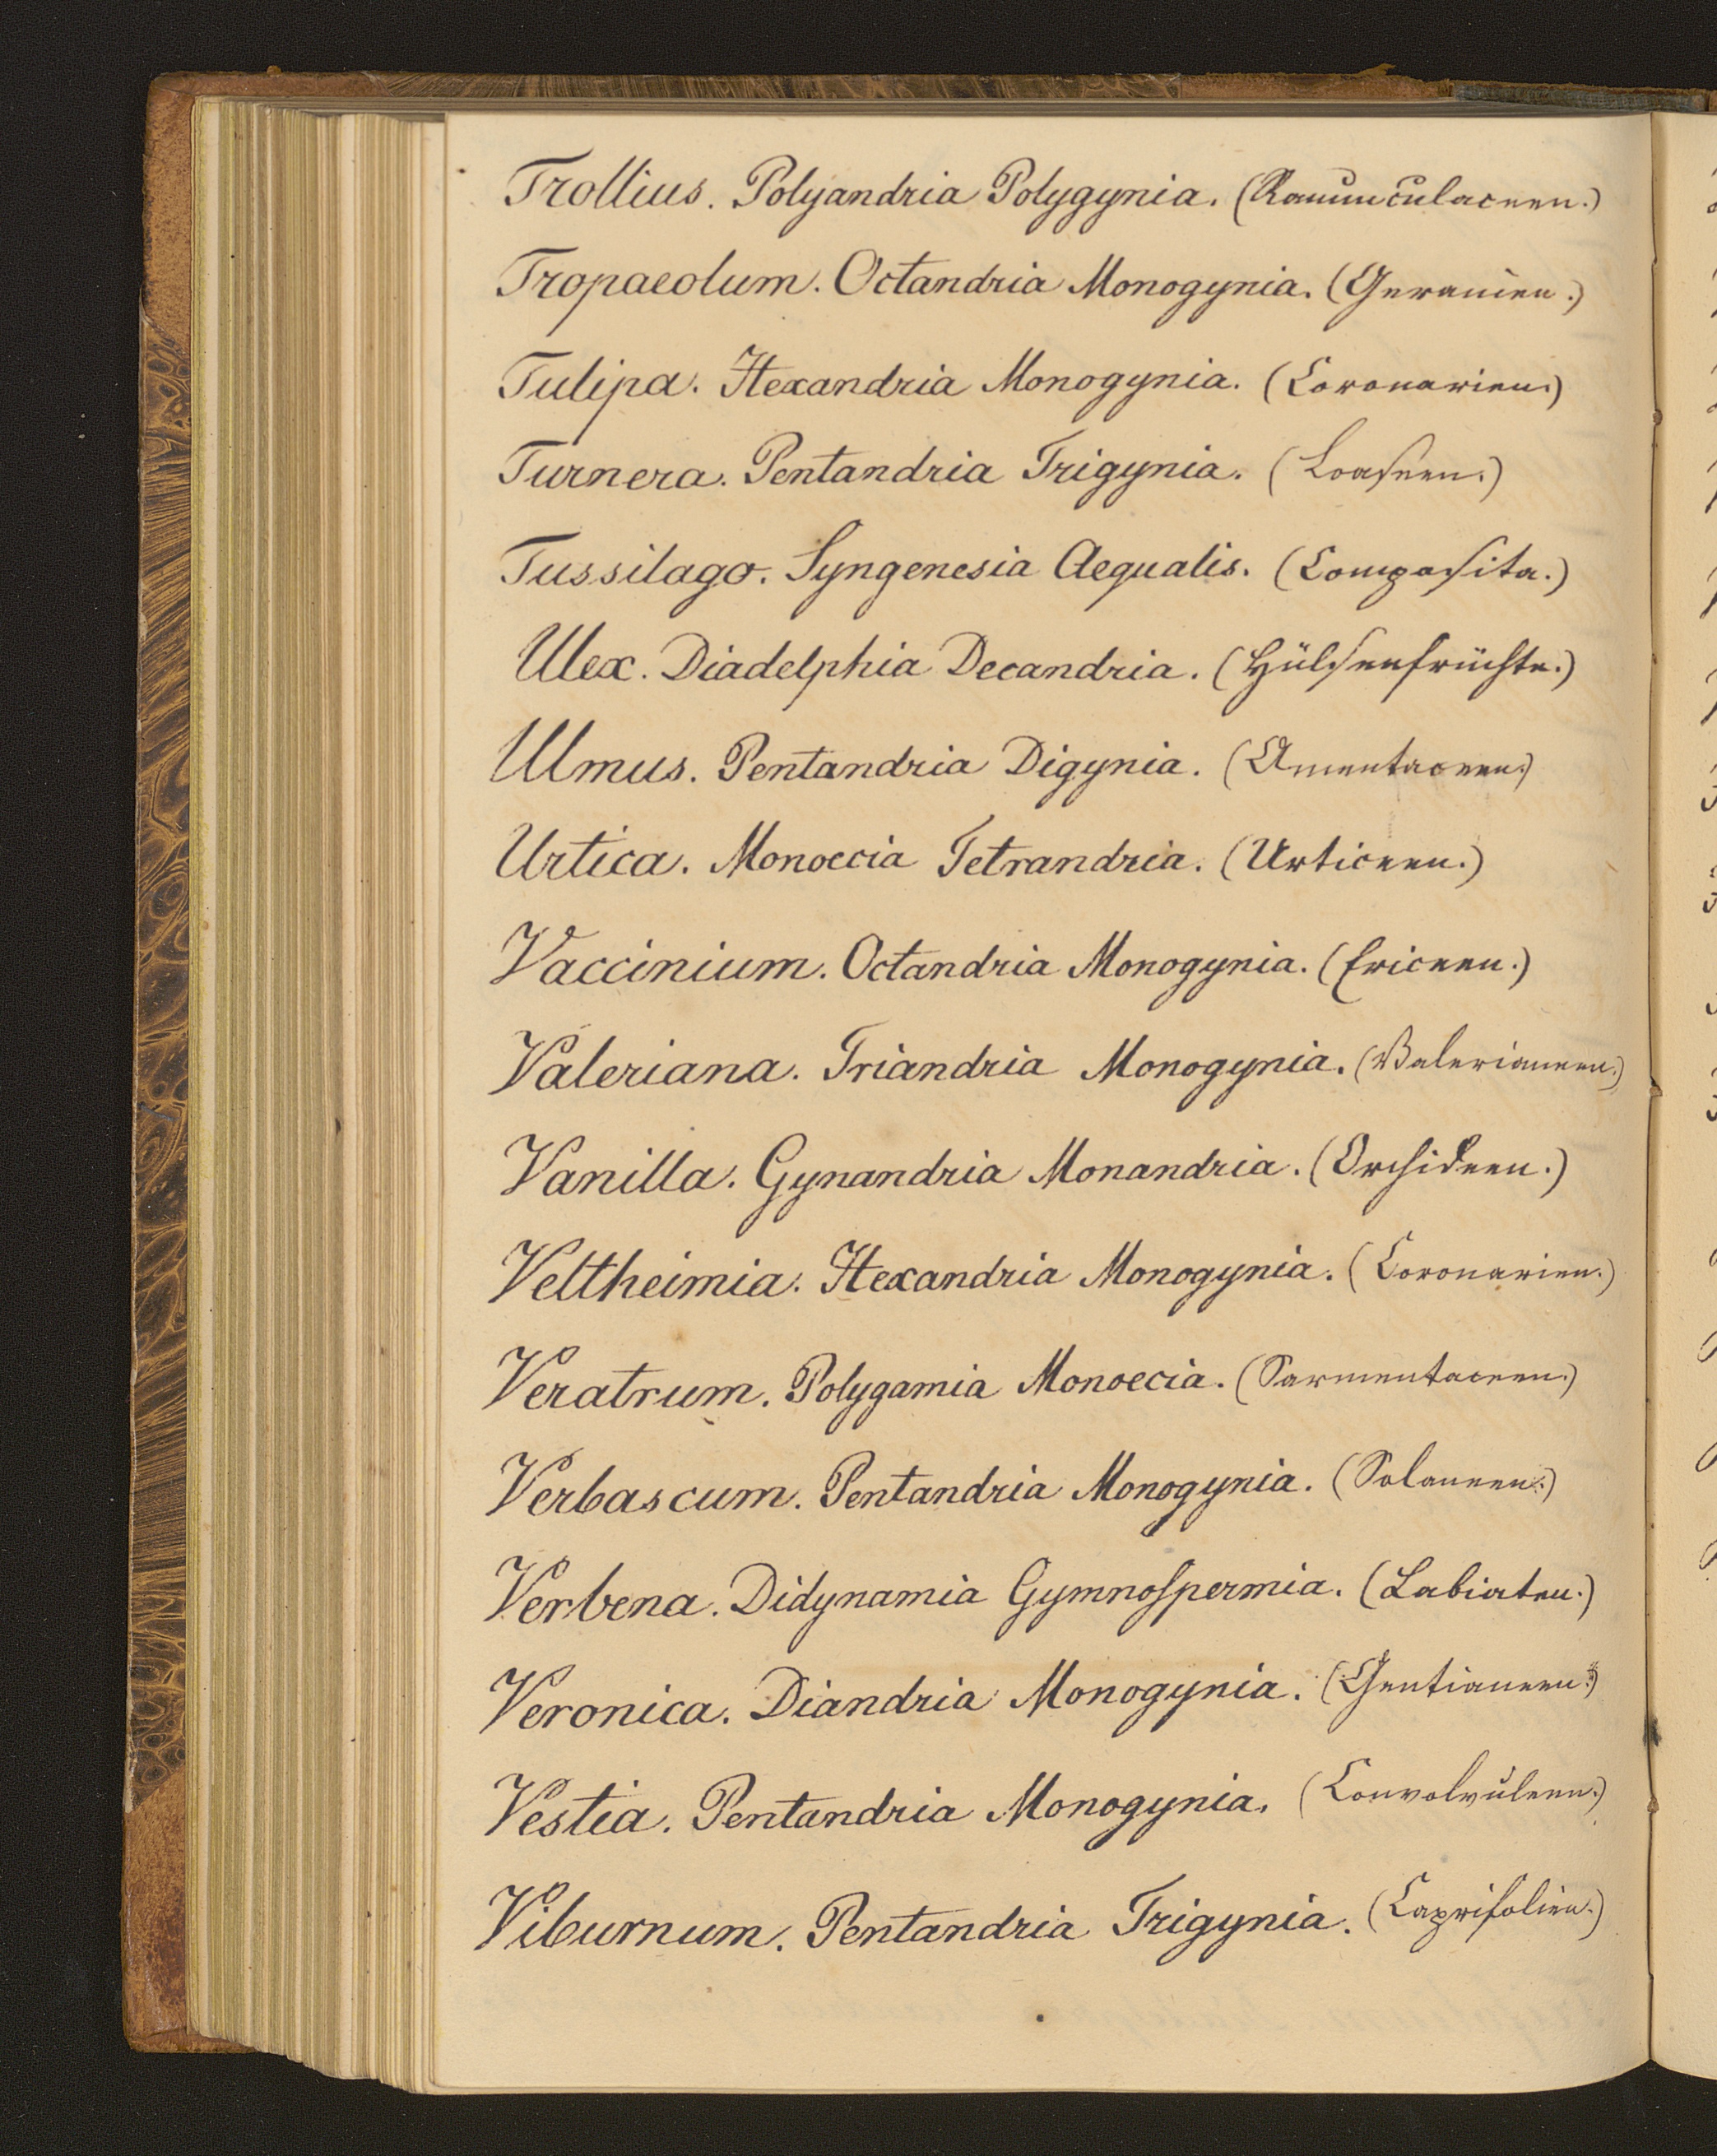 Trollius. Polyandria Polygynia. (Ranunculaceen.)
Tropaeolum. Octandria Monogynia. (Geranien.)
Tulipa. Hexandria Monogynia. (Coronarien.)
Turnera. Pentandria Trigynia. (Loaseen.)
Tussilago. Syngenesia Aequalis. (Composita.)
Ulex. Diadelphia Decandria. (Hülsenfrüchte.)
Ulmus. Pentandria Digynia. (Amentaceen.)
Urtica. Monoecia Tetrandria. (Urticeen.)
Vaccinium. Octandria Monogynia. (Ericeen.)
Valeriana. Triandria Monogynia. (Valerianeen.)
Vanilla. Gynandria Monandria. (Orchideen.)
Veltheimia. Hexandria Monogynia. (Coronarien.)
Veratrum. Polygamia Monoecia. (Sarmentaceen.)
Verbascum. Pentandria Monogynia. (Solaneen.)
Verbena. Didynamia Gymnoſpermia. (Labiaten.)
Veronica. Diandria Monogynia. (Gentianeen.)
Vestia. Pentandria Monogynia. (Convolvuleen.)
Viburnum. Pentandria Trigynia. (Caprifolien.)